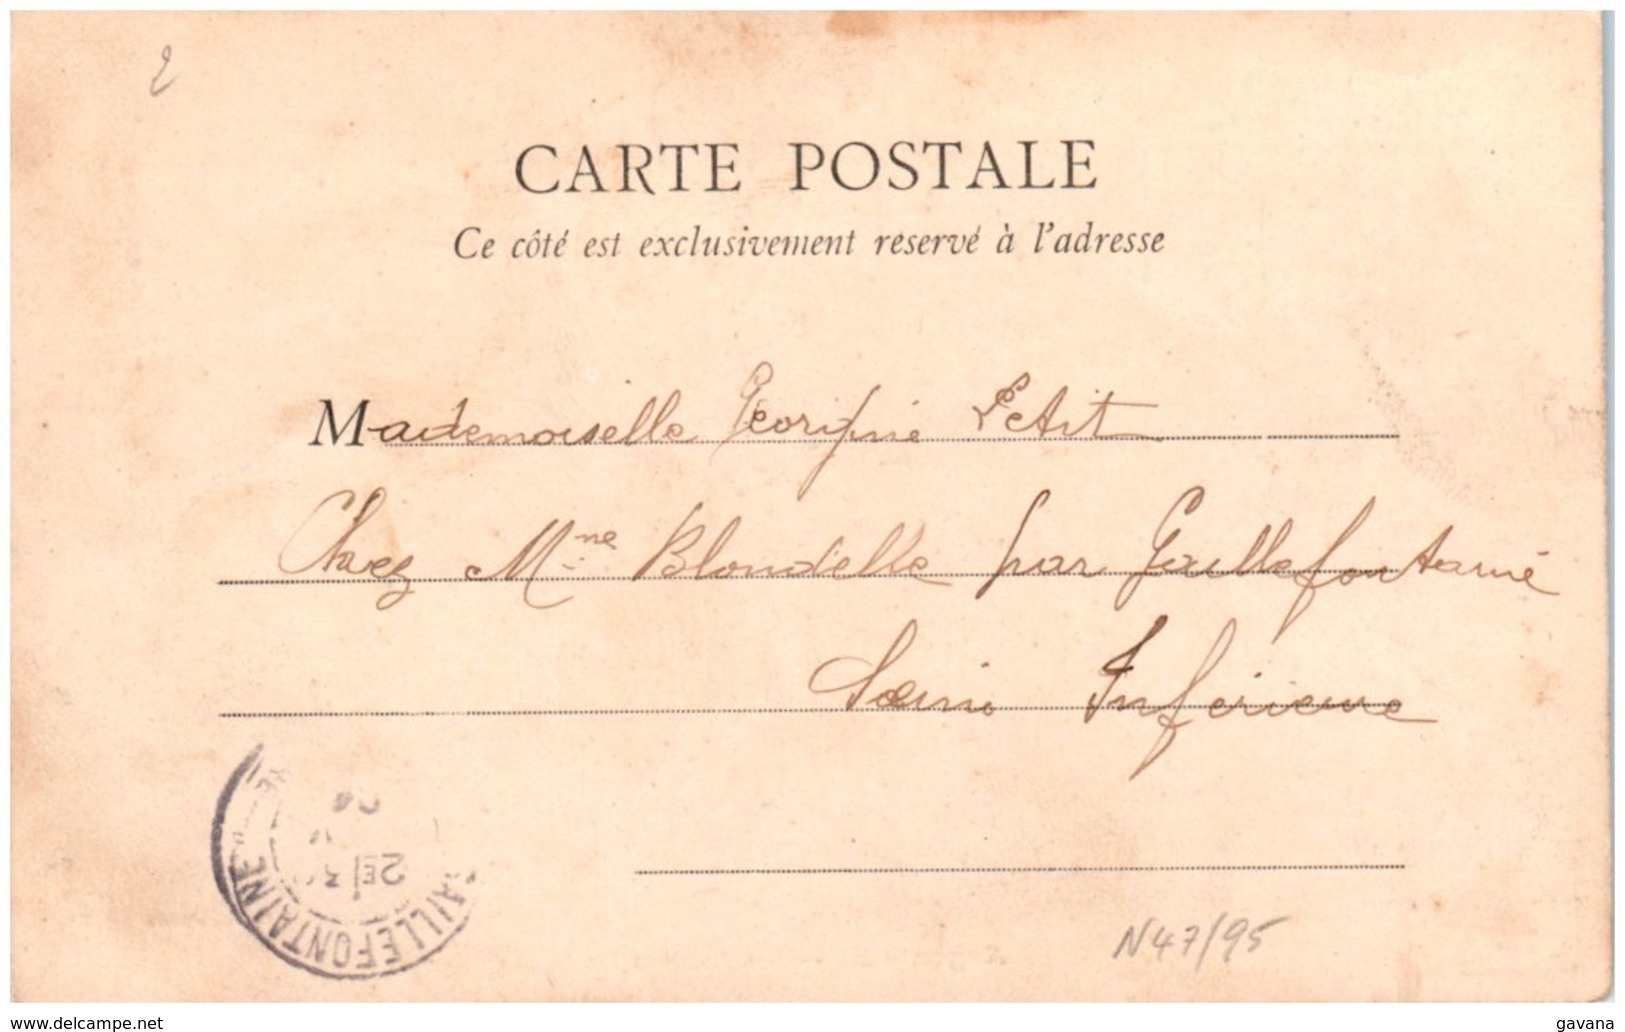 2
CARTE POSTALE
Ce côté est exclusivement reservé à l'adresse
Mademoiselle Georgine Petit
Chez Mme Blondelle par Gaillefontaine
Seine Inférieure
04
2E/3
GAILLEFONTAINE
N47/95
www.delcampe.net
gavana